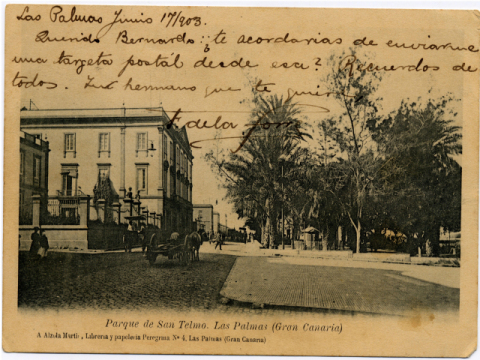 Las Palmas Junio 17/903.
Querido Bernardo: ¿te acordarias de enviarme
una targeta postál desde esa? Recuerdos de
todos. Tu hermano que te quiere
Parque de San Telmo. Las Palmas (Gran Canaria)
Libreria y papeleria Peregrina Nº 4, Las Palmas (Gran Canaria)